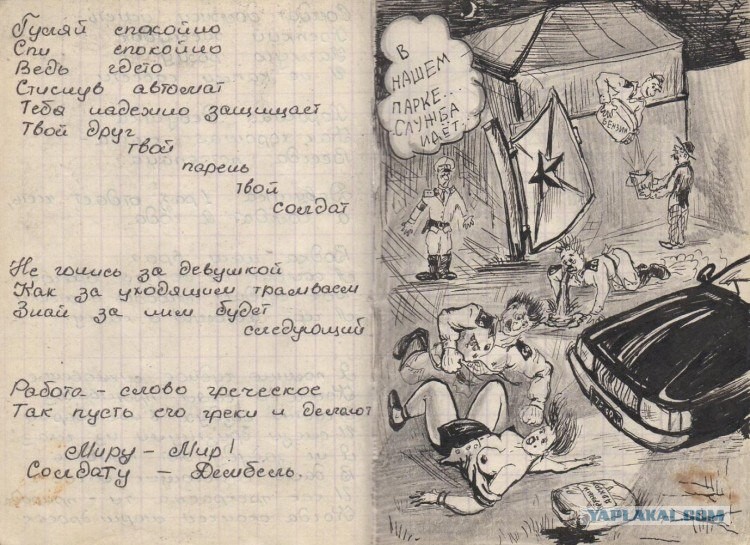 Гуляй спокойно
Спи спокойно
Ведь гдето
Стиснув автомат
Тебя надежно защищает
Твой друг
твой
парень
твой
солдат
Не гонись за девушкой
Как за уходящим трамваем
Знай за ним будет
следующий
Работа – слово греческое
Так пусть его греки и делают
Миру – Мир!
Солдату – Дембель.
В
НАШЕМ
ПАРКЕ...
СЛУЖБА
ИДЁТ...
БЕНЗИН
YAPLAKAL.COM